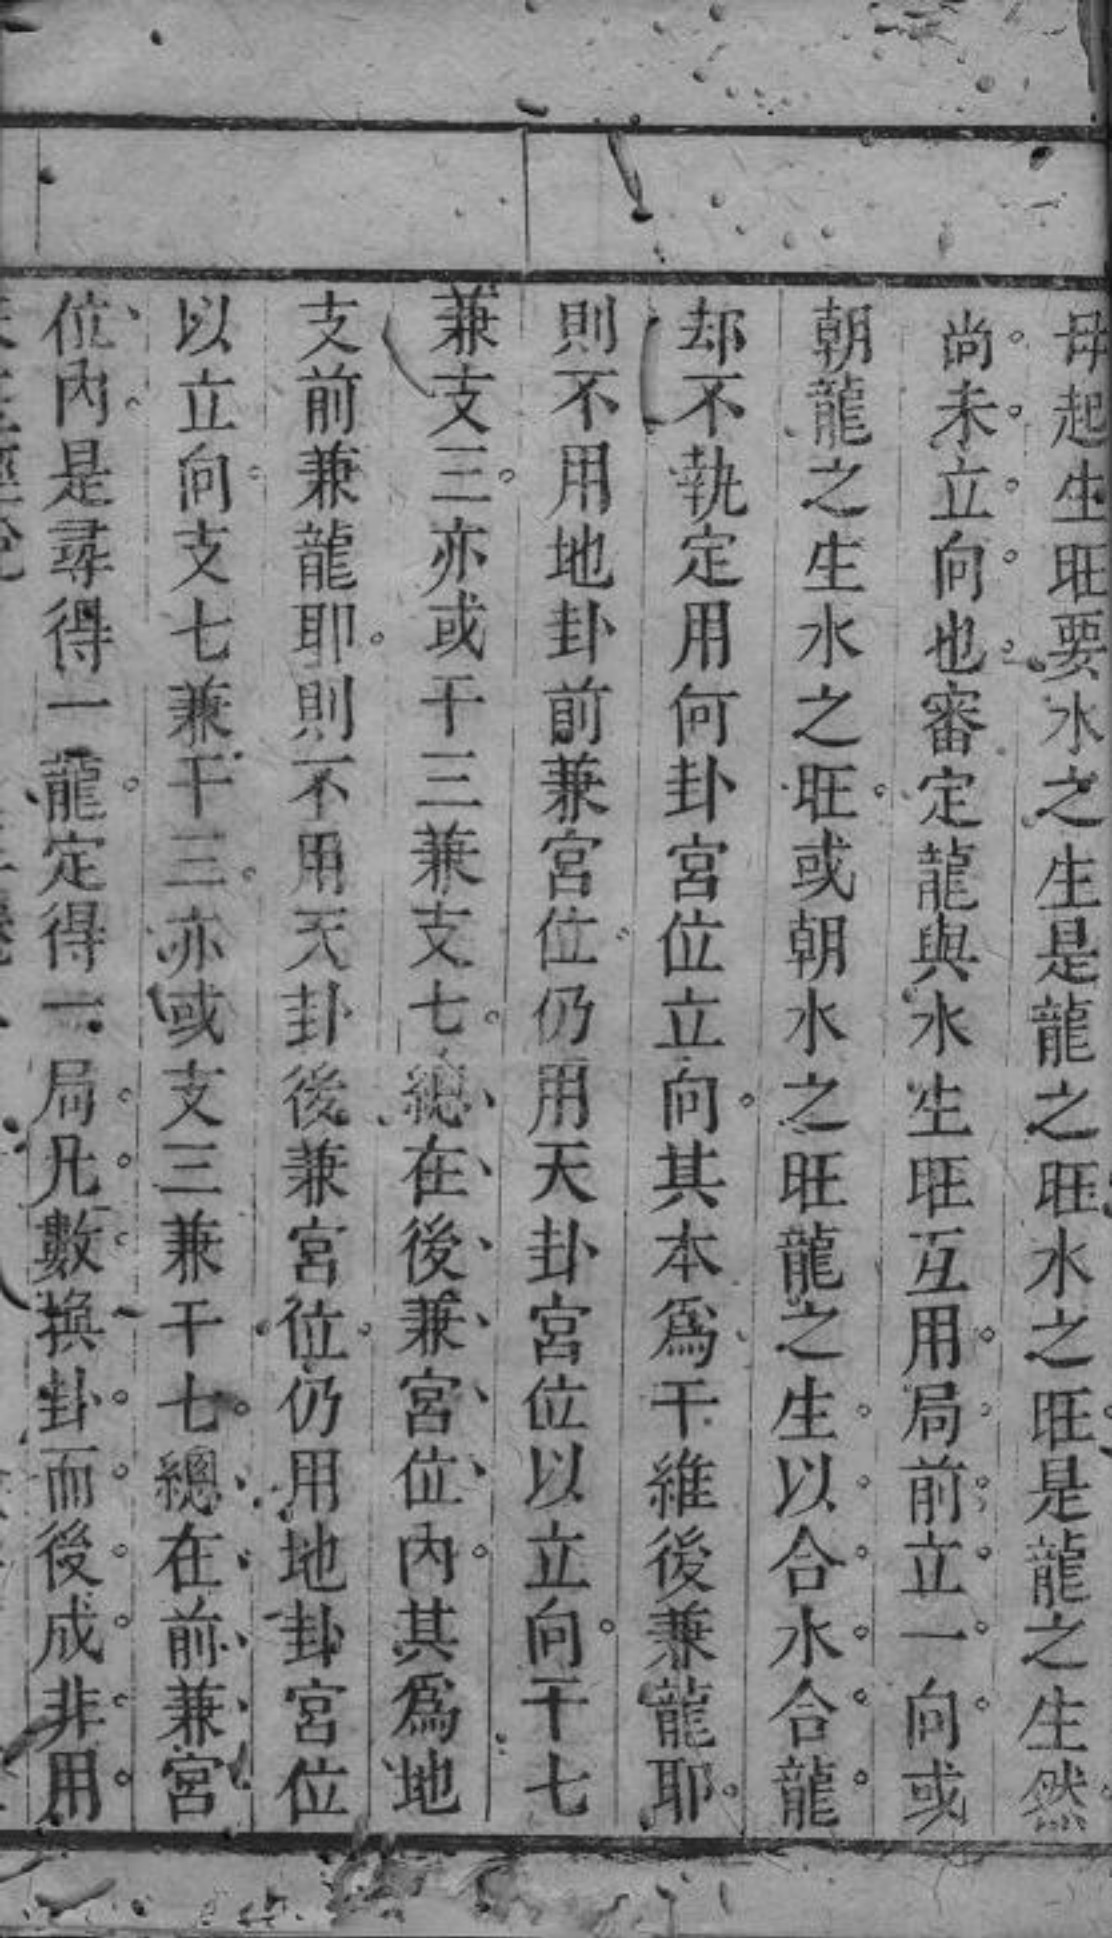 母起生旺要水之生是龍之旺水之旺是龍之生然
尚未立向也審定龍與水生旺互用局前立一向或
朝龍之生水之旺或朝水之旺龍之生以合水合龍
却不執定用何卦宮位立向其本爲干維後兼龍耶
則不用地卦前兼宮位仍用天卦宮位以立向干七
兼支三亦或干三兼支七總在後兼宮位內其爲地
支前兼龍耶則不用天卦後兼宮位仍用地卦宮位
以立向支七兼干三亦或支三兼干七總在前兼宮
位內是尋得一龍定得一局凡數換卦而後成非用